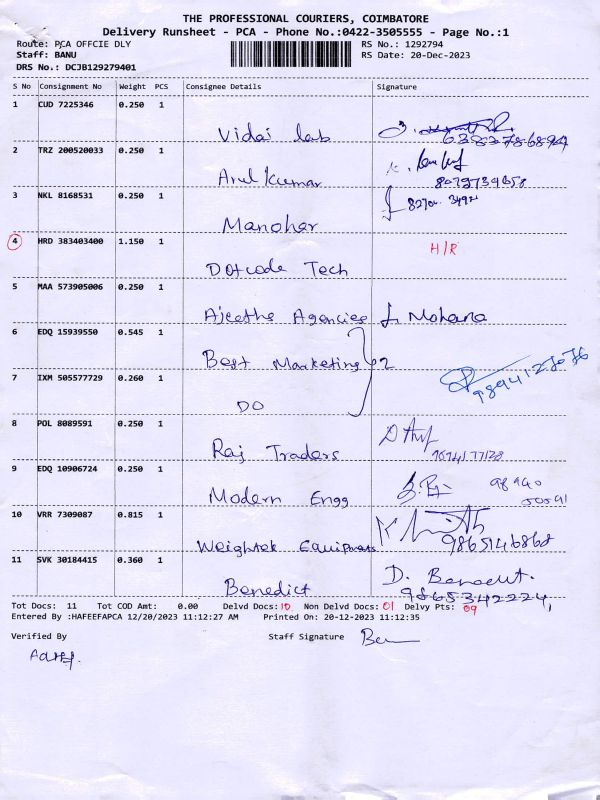 THE PROFESSIONAL COURIERS, COIMBATORE
Delivery Runsheet - PCA - Phone No.:0422-3505555 - Page No.:1
Route: PCA OFFCIE DLY RS No.: 1292794
Staff: BANU RS Date: 20-Dec-2023
DRS No.: DCJB129279401
S No Consignment No Weight PCS Consignee Details Signature
1 CUD 7225346 0.250 1
Vidai Lab
2 TRZ 200520033 0.250 1
Arul Kumar
3 NKL 8168531 0.250 1
Manohar
4 HRD 383403400 1.150 1 H/R
Dotcode Tech
5 MAA 573905006 0.250 1
Ajeethe Agencies Mohana
6 EDQ 15939550 0.545 1
Best Marketing 2
7 IXM 505577729 0.260 1
DO
8 POL 8089591 0.250 1
Raj Traders
9 EDQ 10906724 0.250 1
Modern Engg
10 VRR 7309087 0.815 1
Weightek 9865146868
11 SVK 30184415 0.360 1
Benedict 9865342224
Tot Docs: 11 Tot COD Amt: 0.00 Delvd Docs: 10 Non Delvd Docs: 01 Delvy Pts: 09
Entered By :HAFEEFAPCA 12/20/2023 11:12:27 AM Printed On: 20-12-2023 11:12:35
Verified By Staff Signature